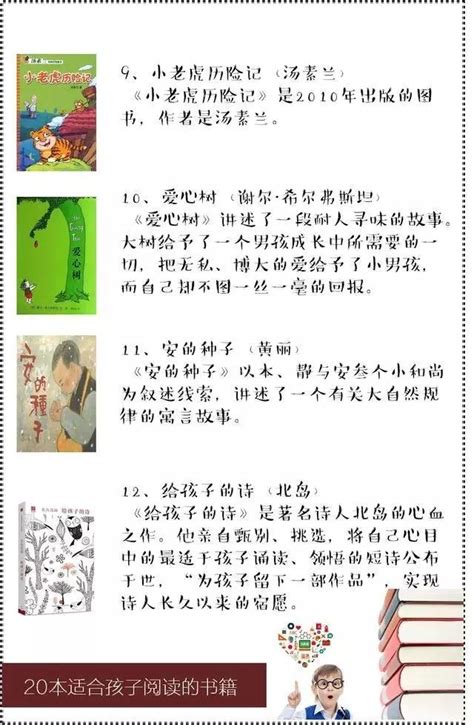 汤素兰
小老虎历险记
9、小老虎历险记（汤素兰）
《小老虎历险记》是2010年出版的图
书，作者是汤素兰。
爱心树
10、爱心树（谢尔·希尔弗斯坦）
《爱心树》讲述了一段耐人寻味的故事。
大树给予了一个男孩成长中所需要的一
切，把无私、博大的爱给予了小男孩，
而自己却不图一丝一毫的回报。
安的種子
11、安的种子（黄丽）
《安的种子》以本、静与安叁个小和尚
为叙述线索，讲述了一个有关大自然规
律的寓言故事。
给孩子的诗
12、给孩子的诗（北岛）
《给孩子的诗》是著名诗人北岛的心血
之作。他亲自甄别、挑选，将自己心目
中的最适于孩子诵读、领悟的短诗公布
于世，“为孩子留下一部作品”，实现
诗人长久以来的宿愿。
20本适合孩子阅读的书籍